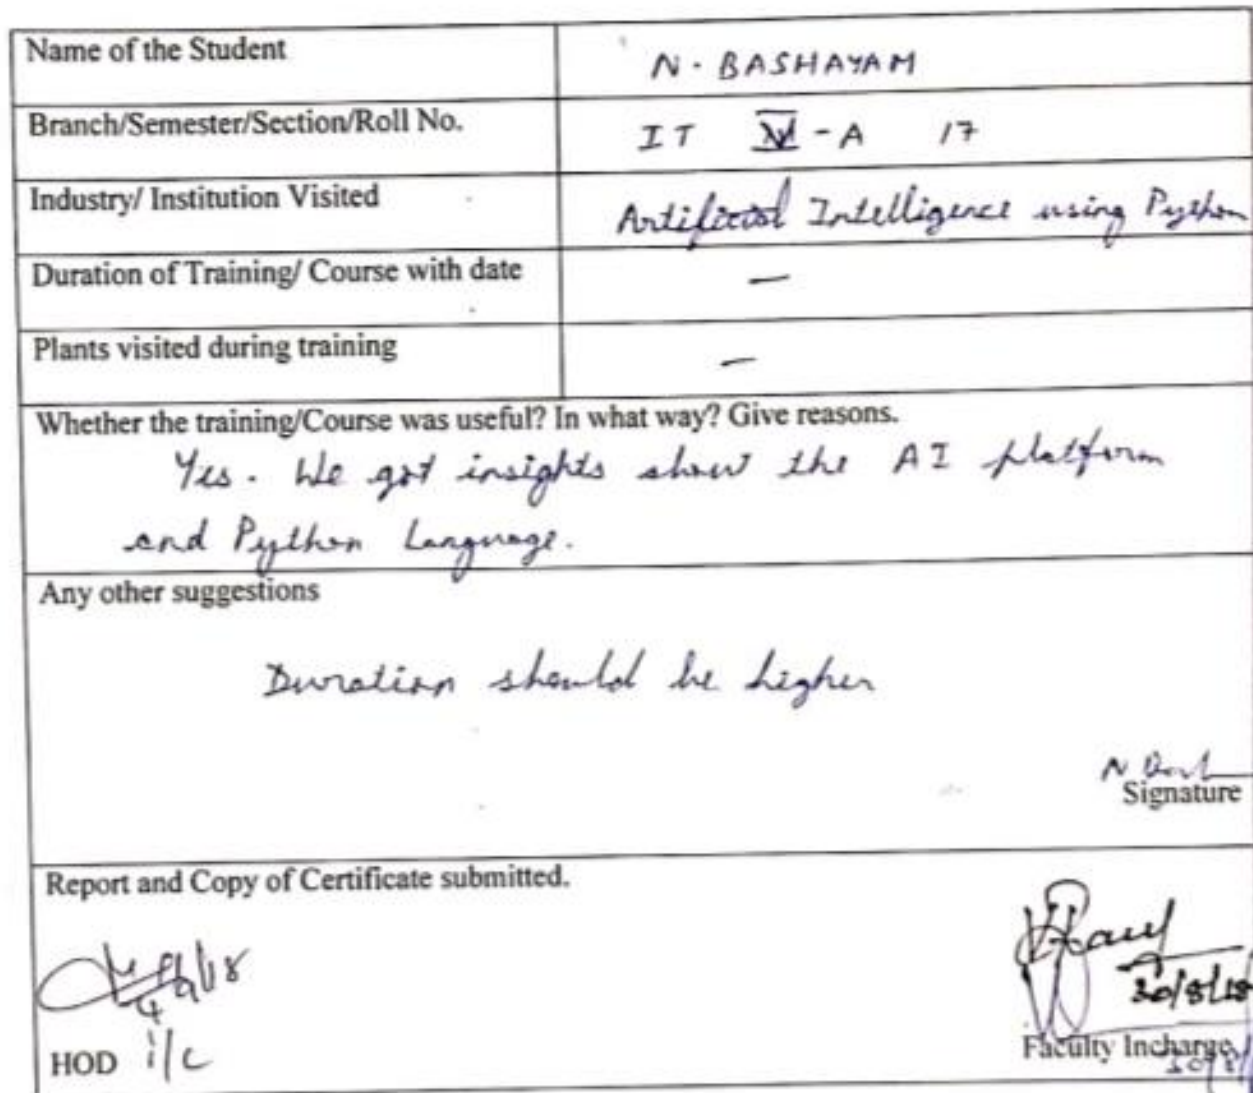 Name of the Student N. BASHAYAM
Branch/Semester/Section/Roll No. IT - A 17
Industry/ Institution Visited Artificial Intelligence using Python
Duration of Training/ Course with date —
Plants visited during training —
Whether the training/Course was useful? In what way? Give reasons.
Yes. We got insights the AI platform
and Python Language.
Any other suggestions
Duration should be higher
Signature
Report and Copy of Certificate submitted.
30/8/18
HOD i/c Faculty Incharge